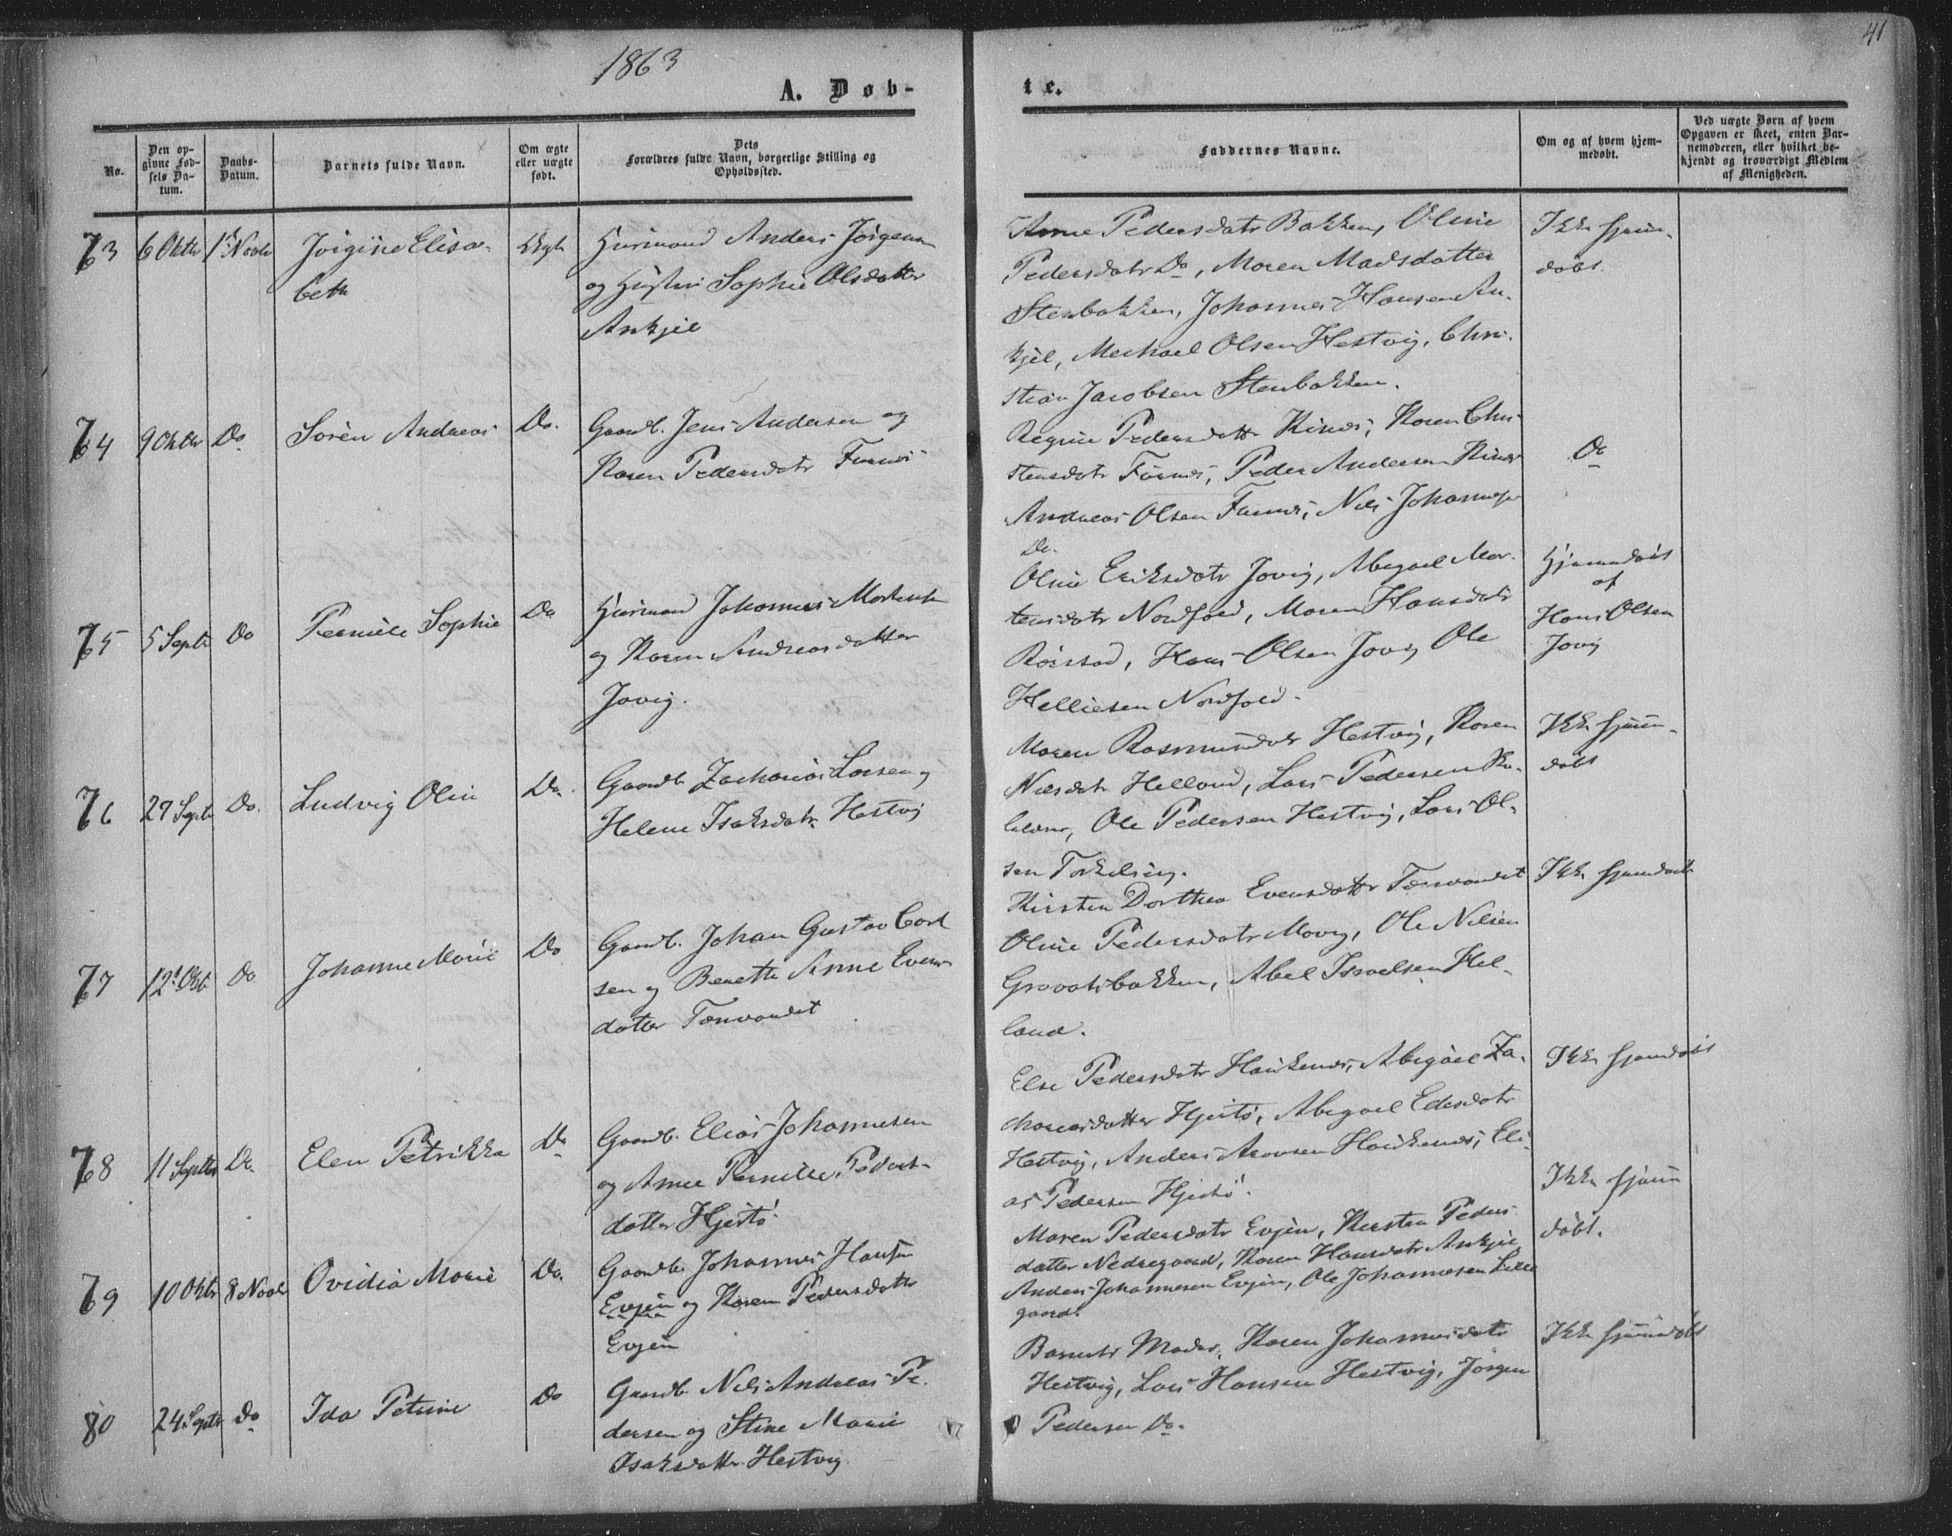 1863
41
A. Døb-
te.
No.
Den op-
givne Fød-
sels Da-
tum.
Daabs-
Datum.
Barnets fulde Navn.
Om ægte
eller uægte
født.
Dets
Forældres fulde Navn, borgerlige Stilling og
Opholdssted.
Faddernes Navne.
Om og af hvem hjem-
medøbt.
Ved uægte Børn af hvem
Opgaven er skeet, enten Bar-
nemoderen, eller hvilket be-
kjendt og troværdigt Medlem
af Menigheden.
73 6 Oktbr 1ste Novbr Jørgine Elisa-
beth
Ægte
Huusmand Anders Jørgensen
og Hustru Sophie Olsdatter
Ankjel
Anne Pedersdatr Bakken, Oline
Pedersdatr Do, Maren Madsdatter
Stenbakken, Johannes Hansen An-
kjel, Mechael Olsen Hestvig, Chri-
stian Jacobsen Stenbakken.
Ikke hjem-
døbt.
74 9 Oktbr Do Sørén Andreas Do.
Gaardb. Jens Andersen og
Karen Pedersdatr Furnes
Regine Pedersdatter Kines, Karen Chri-
stensdatr Furnes, Peder Andersen Kines
Andreas Olsen Furnes, Nils Johannesen
Do.
Do
75 5 Septr Do Pernille Sophie Do
Huusmand Johannes Mortensen
og Karen Andreasdatter
Jovig.
Oline Eriksdatr Jovig, Abigael Mor-
tensdatr Nordfold, Maren Hansdatr
Røsstad, Hans Olsen Jovig Ole
Helliesen Nordfold.
Hjemmedøbt
af
Hans Olsen
Jovig
76 27 Septr Do. Ludvig Olai Do.
Gaardb. Zacharias Larsen og
Helene Isaksdatr Hestvig
Maren Rasmusdatr Hestvig, Karen
Nilsdatr Helland, Lars Pedersen
Ole Pedersen Hestvig, Lars Ol-
sen
Ikke hjem-
døbt
77 12te Okt. Do Johanne Marie Do
Gaardb. Johan Gustav Carl
sen og Benette Anne Evens-
datter Tennvandet
Kirsten Dorthea Evensdatter Tennvandet
Oline Pedersdatr Movig, Ole Nilsen
Gravatsbakken, Abel Israelsen Hel-
land.
Ikke hjemdøbt
78 11 Septbr Do. Elen Petrikka Do
Gaardb. Elias Johannesen
og Anne Pernille Peders-
datter Hjertø
Else Pedersdatr Haukenes, Abigael Za-
chariasdatter Hjertø, Abigael Edisdatr
Hestvig, Anders Aronsen Haukenes, Eli-
as Pedersen Hjertø.
Ikke hjemdøbt
79 10 Oktbr 8 Novbr Ovidia Marie Do.
Gaardb. Johannes Hansen
Evjen og Karen Pedersdatter
Evjen
Maren Pedersdatr Evjen, Kirsten Peders-
datter Nedregaard, Karen Hansdatr Ankjel
Anders Johannesen Evjen, Ole Johannesen Lille
gaard.
Ikke hjem
døbt.
80 24 Septr Do Ida Petrine Do
Gaardb. Nils Andreas Pe-
dersen og Stine Marie
Isaksdatter Hestvig
Barnets Moder, Karen Johannesdatr
Hestvig, Lars Hansen Hestvig, Jørgen
Pedersen Do.
Ikke hjemmedøbt